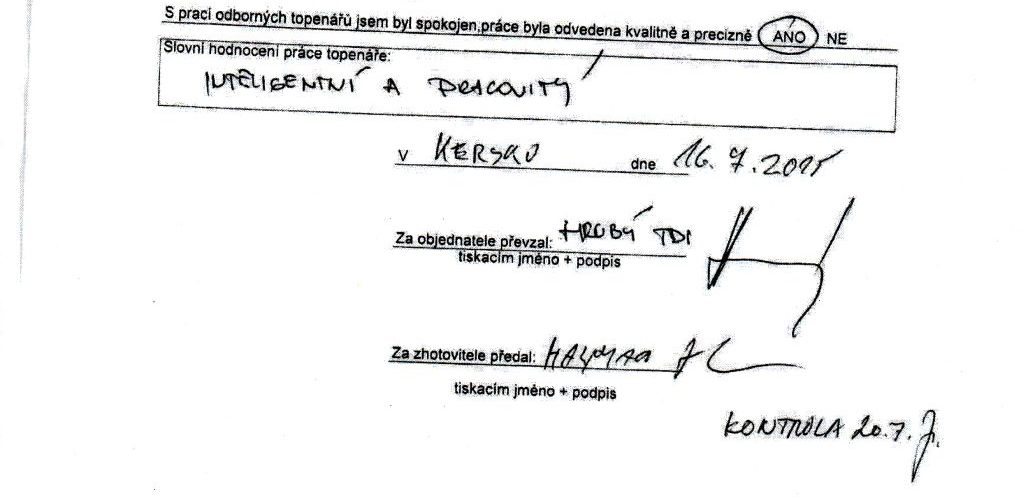 S prací odborných topenářů jsem byl spokojen,práce byla odvedena kvalitně a precizně ANO NE
Slovní hodnocení práce topenáře:
INTELIGENTNÍ A PRACOVITÝ
v KERSKU dne 16. 7. 2015
Za objednatele převzal: HRUBÝ TDI
tiskacím jméno + podpis
Za zhotovitele předal:
tiskacím jméno + podpis
KONTROLA 20.7.